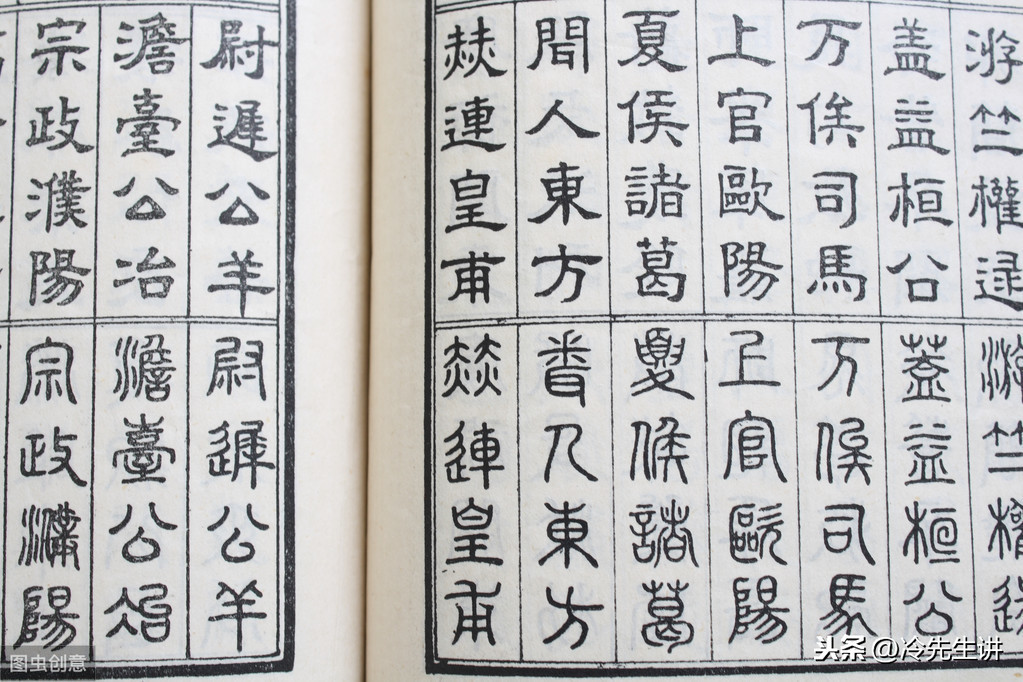 游竺權逯
盖益桓公
万俟司馬
上官歐陽
夏侯諸葛
聞人東方
赫連皇甫
游竺權逯
蓋益桓公
万俟司馬
上官歐陽
夏侯諸葛
聞人東方
赫連皇甫
尉遲公羊
澹臺公冶
宗政濮陽
尉遲公羊
澹臺公冶
宗政濮陽
图虫创意
头条 @冷先生讲